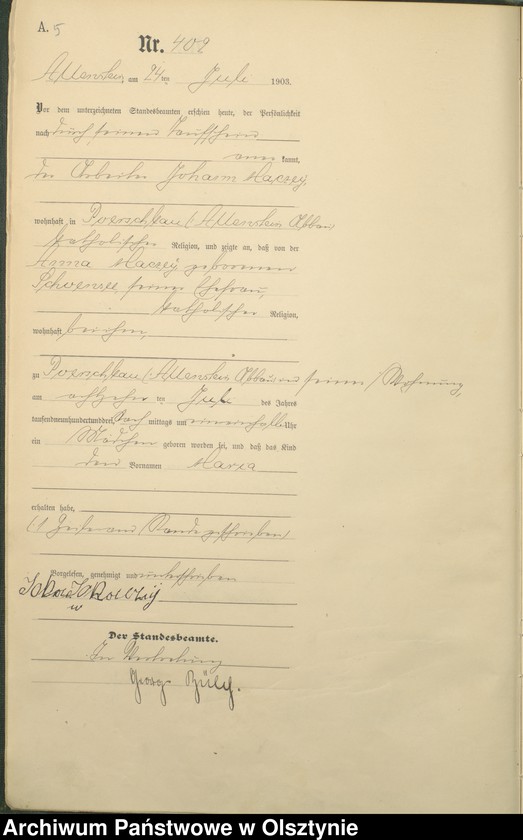 A. 5
Nr. 402
Allenstein am 24ten Juli 1903.
Vor dem unterzeichneten Standesbeamten erschien heute, der Persönlichkeit
nach durch seinen Taufschein
aner kannt,
der Arbeiter Johann Maczey,
wohnhaft in Poerschkau (Allenstein Abbau)
katholischer Religion, und zeigte an, daß von der
Anna Maczey geborenen
Schoensee seiner Ehefrau,
katholischer Religion,
wohnhaft bei ihm,
zu Poerschkau (Allenstein Abbau) in seiner Wohnung,
am achtzehnten Juli des Jahres
tausendneunhundertunddrei Nachmittags um Uhr
ein Mädchen geboren worden sei, und daß das Kind
den Vornamen Maria
erhalten habe,
(1 Zeile am Rande geschrieben)
Vorgelesen, genehmigt und unterschrieben
Der Standesbeamte.
In Vertretung
Georg
Archiwum Państwowe w Olsztynie